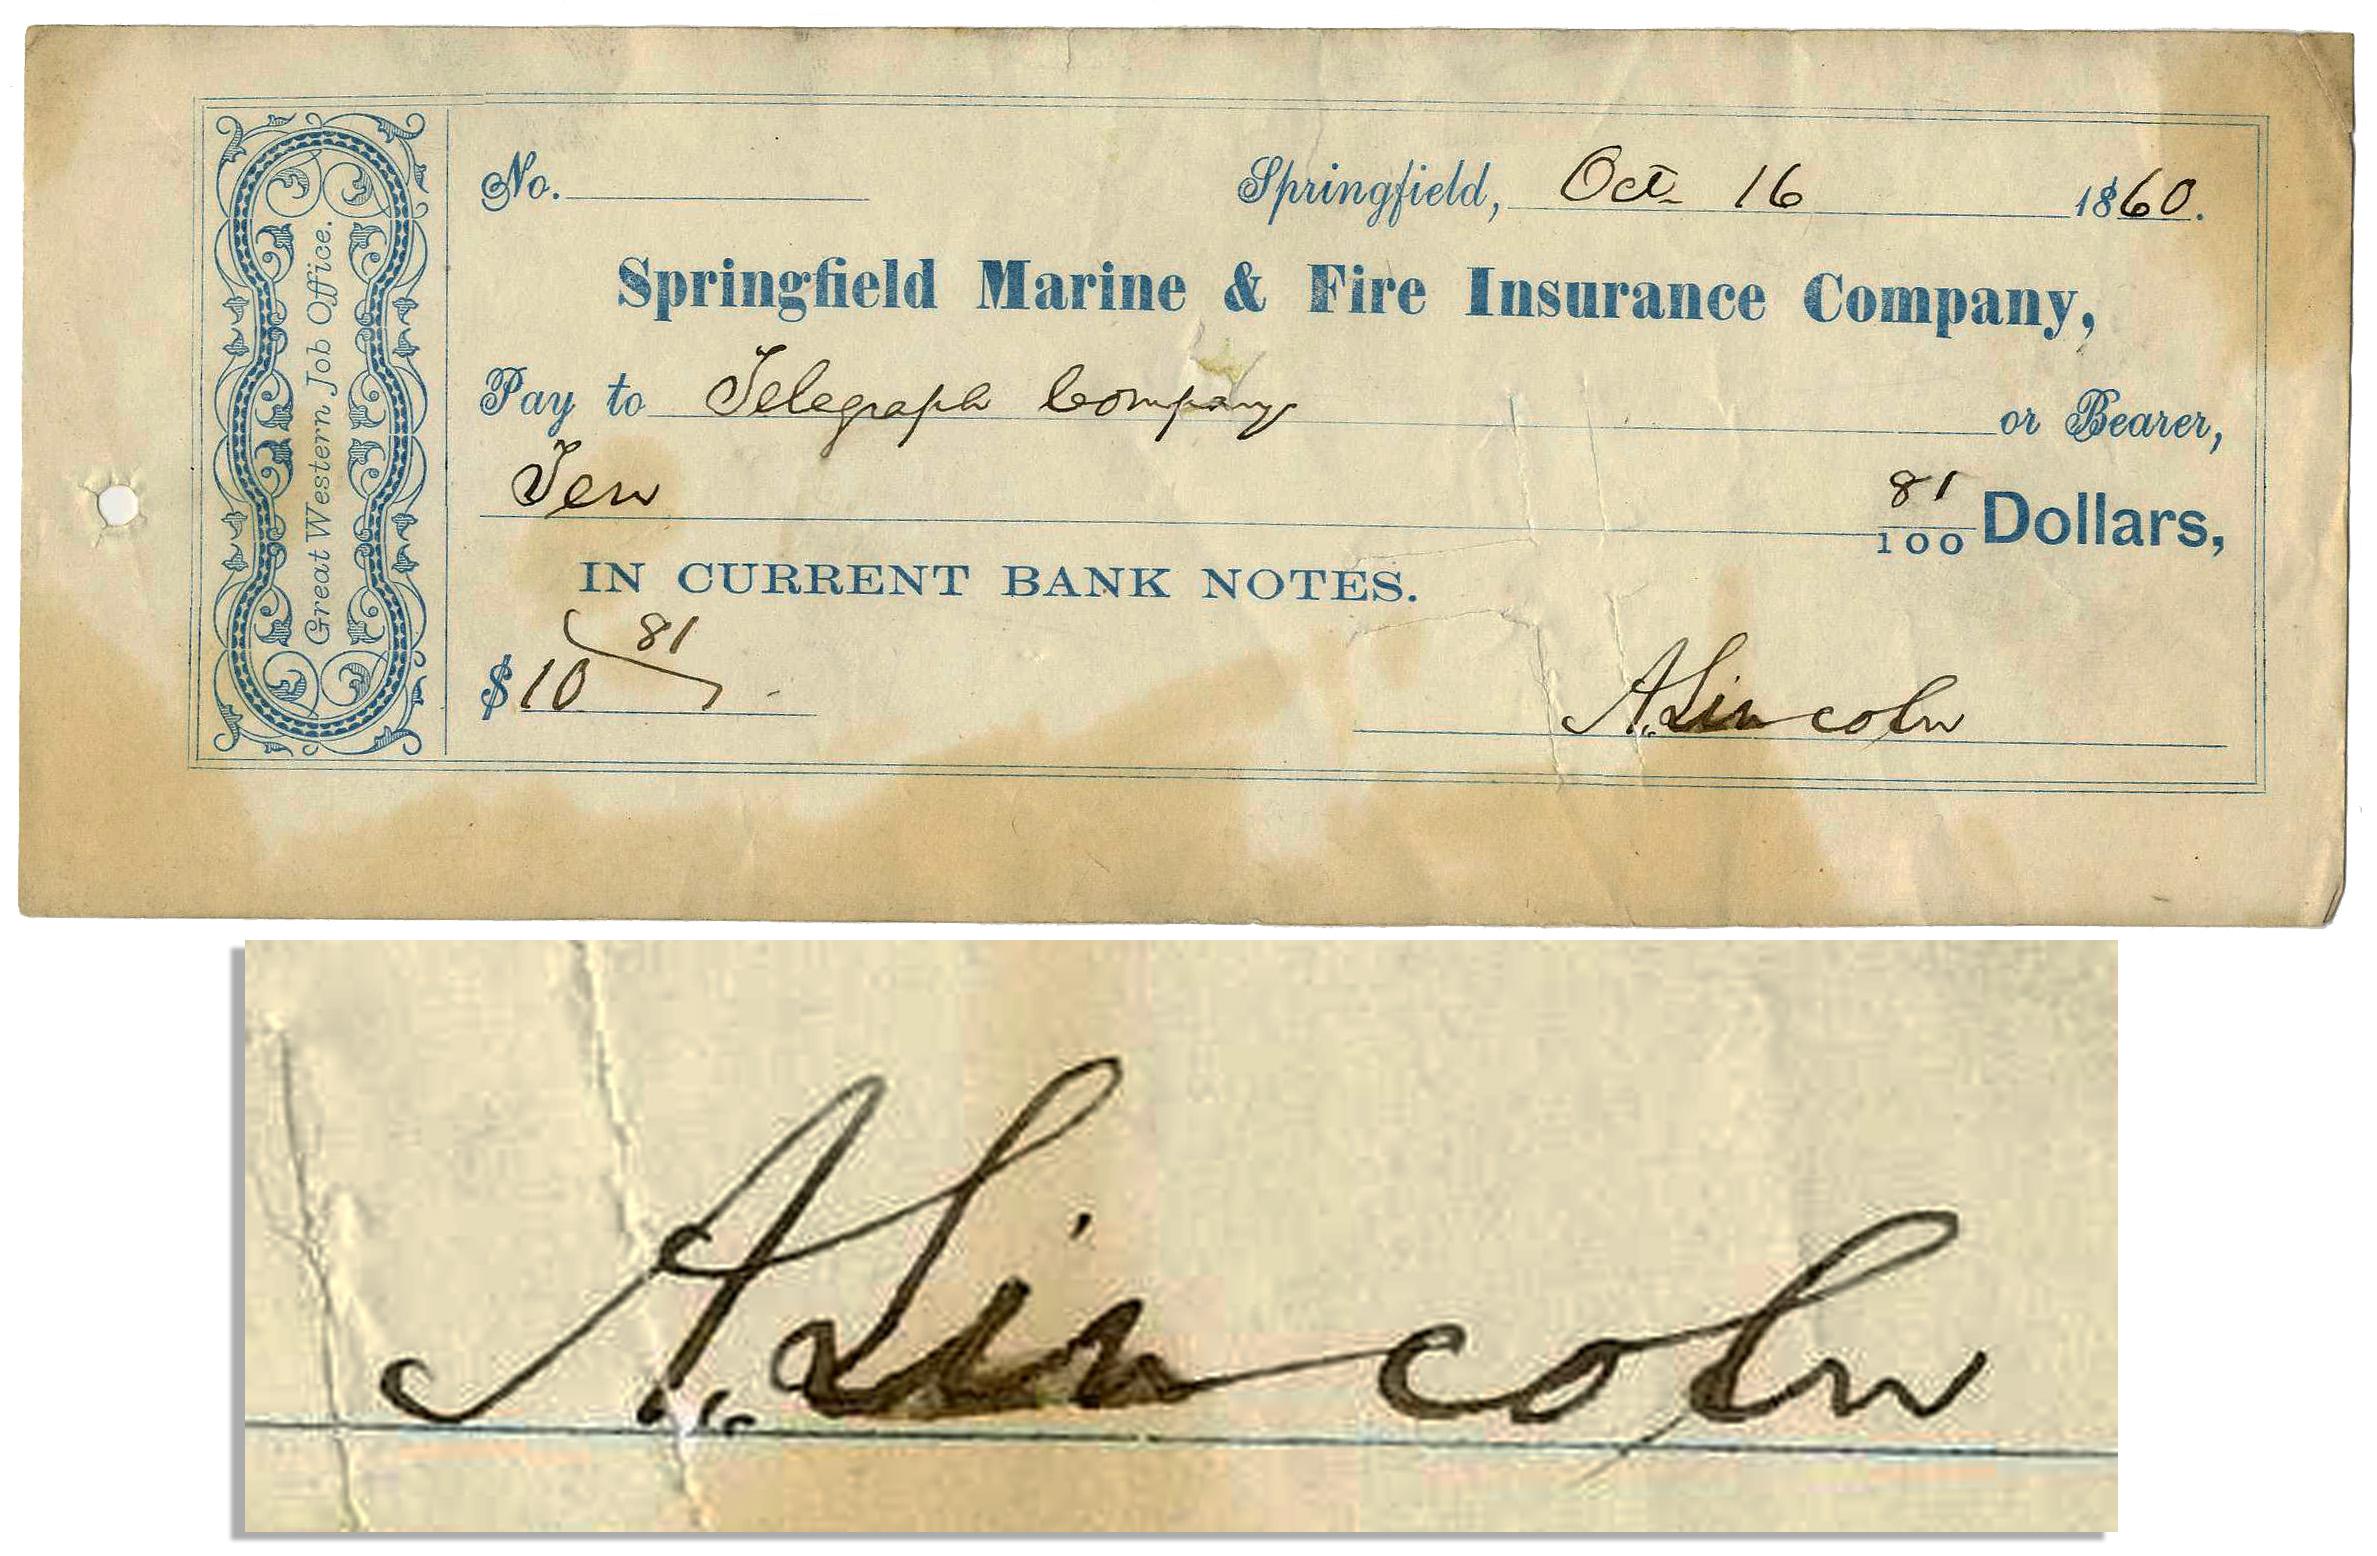 Great Western Job Office.
No.
Springfield, Oct. 16 1860.
Springfield Marine & Fire Insurance Company,
Pay to Telegraph Company or Bearer,
Ten 81/100 Dollars,
IN CURRENT BANK NOTES.
$10 81
A. Lincoln
A. Lincoln